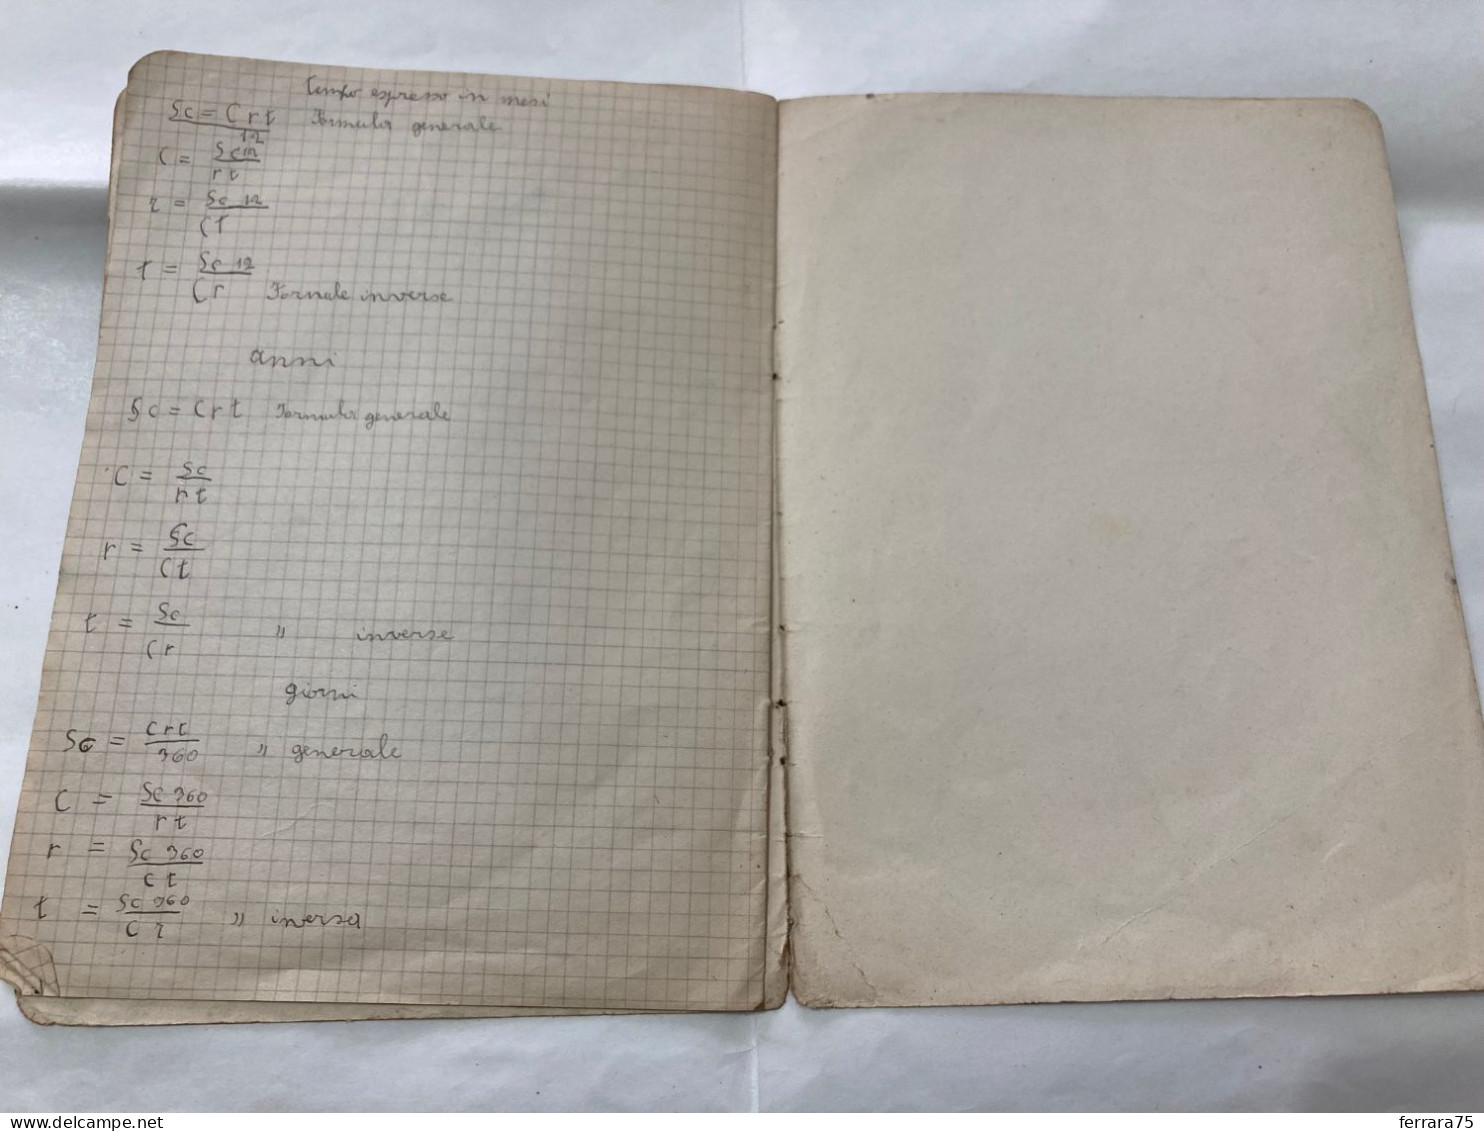 tempo espresso in mesi
Sc = Crt Formula generale
12
C = Sc 12
rt
r = Sc 12
Ct
t = Sc 12
Cr Formale inverse
anni
Sc = Crt Formula generale
C = Sc
rt
r = Sc
Ct
t = Sc
Cr " inverse
giorni
Sc = Crt
360 " generale
C = Sc 360
rt
r = Sc 360
Ct
t = Sc 360
Cr " inversa
ferrara75